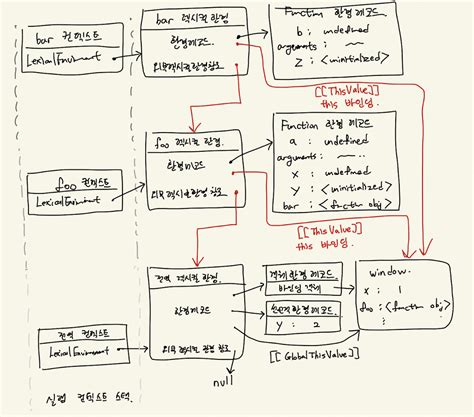 bar 컨텍스트
LexicalEnvironment
bar 렉시컬 환경
환경레코드.
외부렉시컬환경참조
Function 환경 레코드
b : undefined
arguments :
z : <uninitialized>
[[ThisValue]]
this 바인딩.
foo 컨텍스트
LexicalEnvironment
foo 렉시컬 환경.
환경레코드
외부 렉시컬환경 참조
Function 환경레코드
a : undefined
arguments :
x : undefined
y : <uninitialized>
bar : <function obj>
[[ThisValue]]
this 바인딩.
전역 컨텍스트
LexicalEnvironment
전역 렉시컬 환경.
환경레코드
외부 렉시컬 환경 참조
null
객체 환경 레코드.
바인딩 객체
선언적 환경 레코드.
Y : 2
window.
x : 1
foo : <function obj>
[[GlobalThisValue]]
실행 컨텍스트 스택.